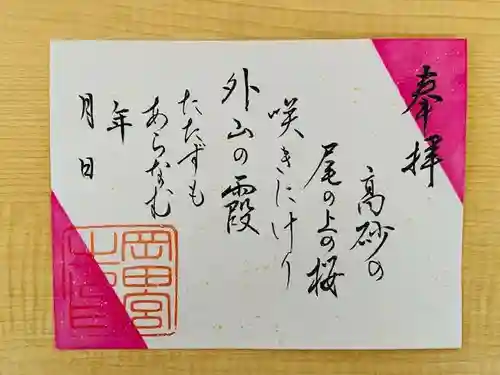 奉拝
高砂の
尾の上の桜
咲きにけり
外山の霞
たたずも
あらなむ
年
月 日
岡田宮